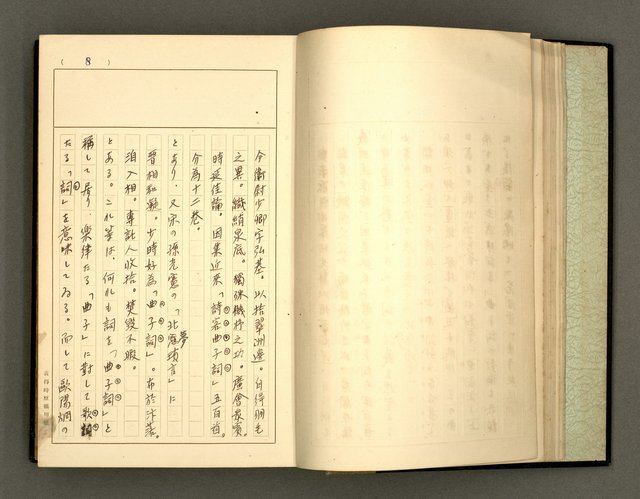 ( 8 )
今衛尉少卿字弘基。以拾翠洲邊。自得羽毛
之異。織綃泉底。獨殊機杼之功。廣會衆賓。
時延佳論。因集近来「詩客曲子詞」五百首。
分為十二巻。
とあり、又宋の孫光憲の「北夢瑣言」に
晉相和凝。少時好為「曲子詞」。布於汴洛。
洎入相。專託人收拾。焚毀不暇。
とある。これ等は、何れも詞を「曲子詞」と
稱して居り、樂律たる「曲子」に對して歌詞
たる「詞」を意味してゐる。而して歐陽烱の